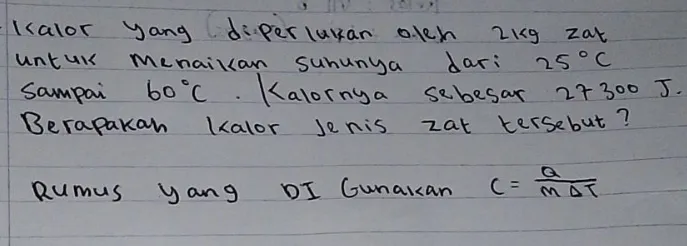 Kalor yang diperlukan oleh 2kg zat
untuk menaikan suhunya dari 25°C
sampai 60°C. Kalornya sebesar 27300 J.
Berapakah kalor jenis zat tersebut?
Rumus yang DI Gunakan C = Q / m ΔT